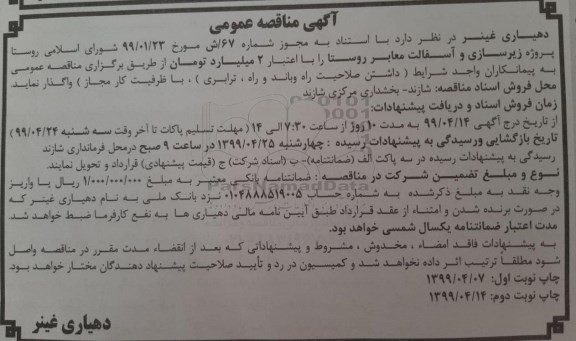 آگهی مناقصه عمومی
دهیاری غینر در نظر دارد با استناد به مجوز شماره ۶۷/ش مورخ ۹۹/۰۱/۲۳ شورای اسلامی روستا
پروژه زیرسازی و آسفالت معابر روستا را با اعتبار ۲ میلیارد تومان از طریق برگزاری مناقصه عمومی
به پیمانکاران واجد شرایط ( داشتن صلاحیت راه وباند و راه ، ترابری ) ، با ظرفیت کار مجاز ) واگذار نماید.
محل فروش اسناد مناقصه: شازند- بخشداری مرکزی شازند
زمان فروش اسناد و دریافت پیشنهادات:
از تاریخ درج آگهی ۹۹/۰۴/۱۴ به مدت ۱۰ روز از ساعت ۷:۳۰ الی ۱۴ ( مهلت تسلیم پاکات تا آخر وقت سه شنبه ۹۹/۰۴/۲۴ )
تاریخ بازگشایی ورسیدگی به پیشنهادات رسیده : چهارشنبه ۱۳۹۹/۰۴/۲۵ در ساعت ۹ صبح درمحل فرمانداری شازند
رسیدگی به پیشنهادات رسیده در سه پاکت الف (ضمانتنامه)- ب (اسناد شرکت) ج (قیمت پیشنهادی) قرارداد و تحویل نمایند.
نوع و مبلغ تضمین شرکت در مناقصه : ضمانتنامه بانکی معتبر به مبلغ ۱/۰۰۰/۰۰۰/۰۰۰ ریال یا واریز
وجه نقد به مبلغ ذکرشده به شماره حساب ۰۱۰۴۸۸۸۵۱۹۰۰۵ نزد بانک ملی به نام دهیاری غینر که
در صورت برنده شدن و امتناء از عقد قرارداد طبق آیین نامه مالی دهیاری ها به نفع کارفرما ضبط خواهد شد.
مدت اعتبار ضمانتنامه یکسال شمسی خواهد بود.
به پیشنهادات فاقد امضاء ، مخدوش ، مشروط و پیشنهاداتی که بعد از انقضاء مدت مقرر در مناقصه واصل
شود مطلقاً ترتیب اثر داده نخواهد شد و کمیسیون در رد و تأیید صلاحیت پیشنهاد دهندگان مختار خواهد بود.
چاپ نوبت اول: ۱۳۹۹/۰۴/۰۷
چاپ نوبت دوم: ۱۳۹۹/۰۴/۱۴
دهیاری غینر
ParsNamadData